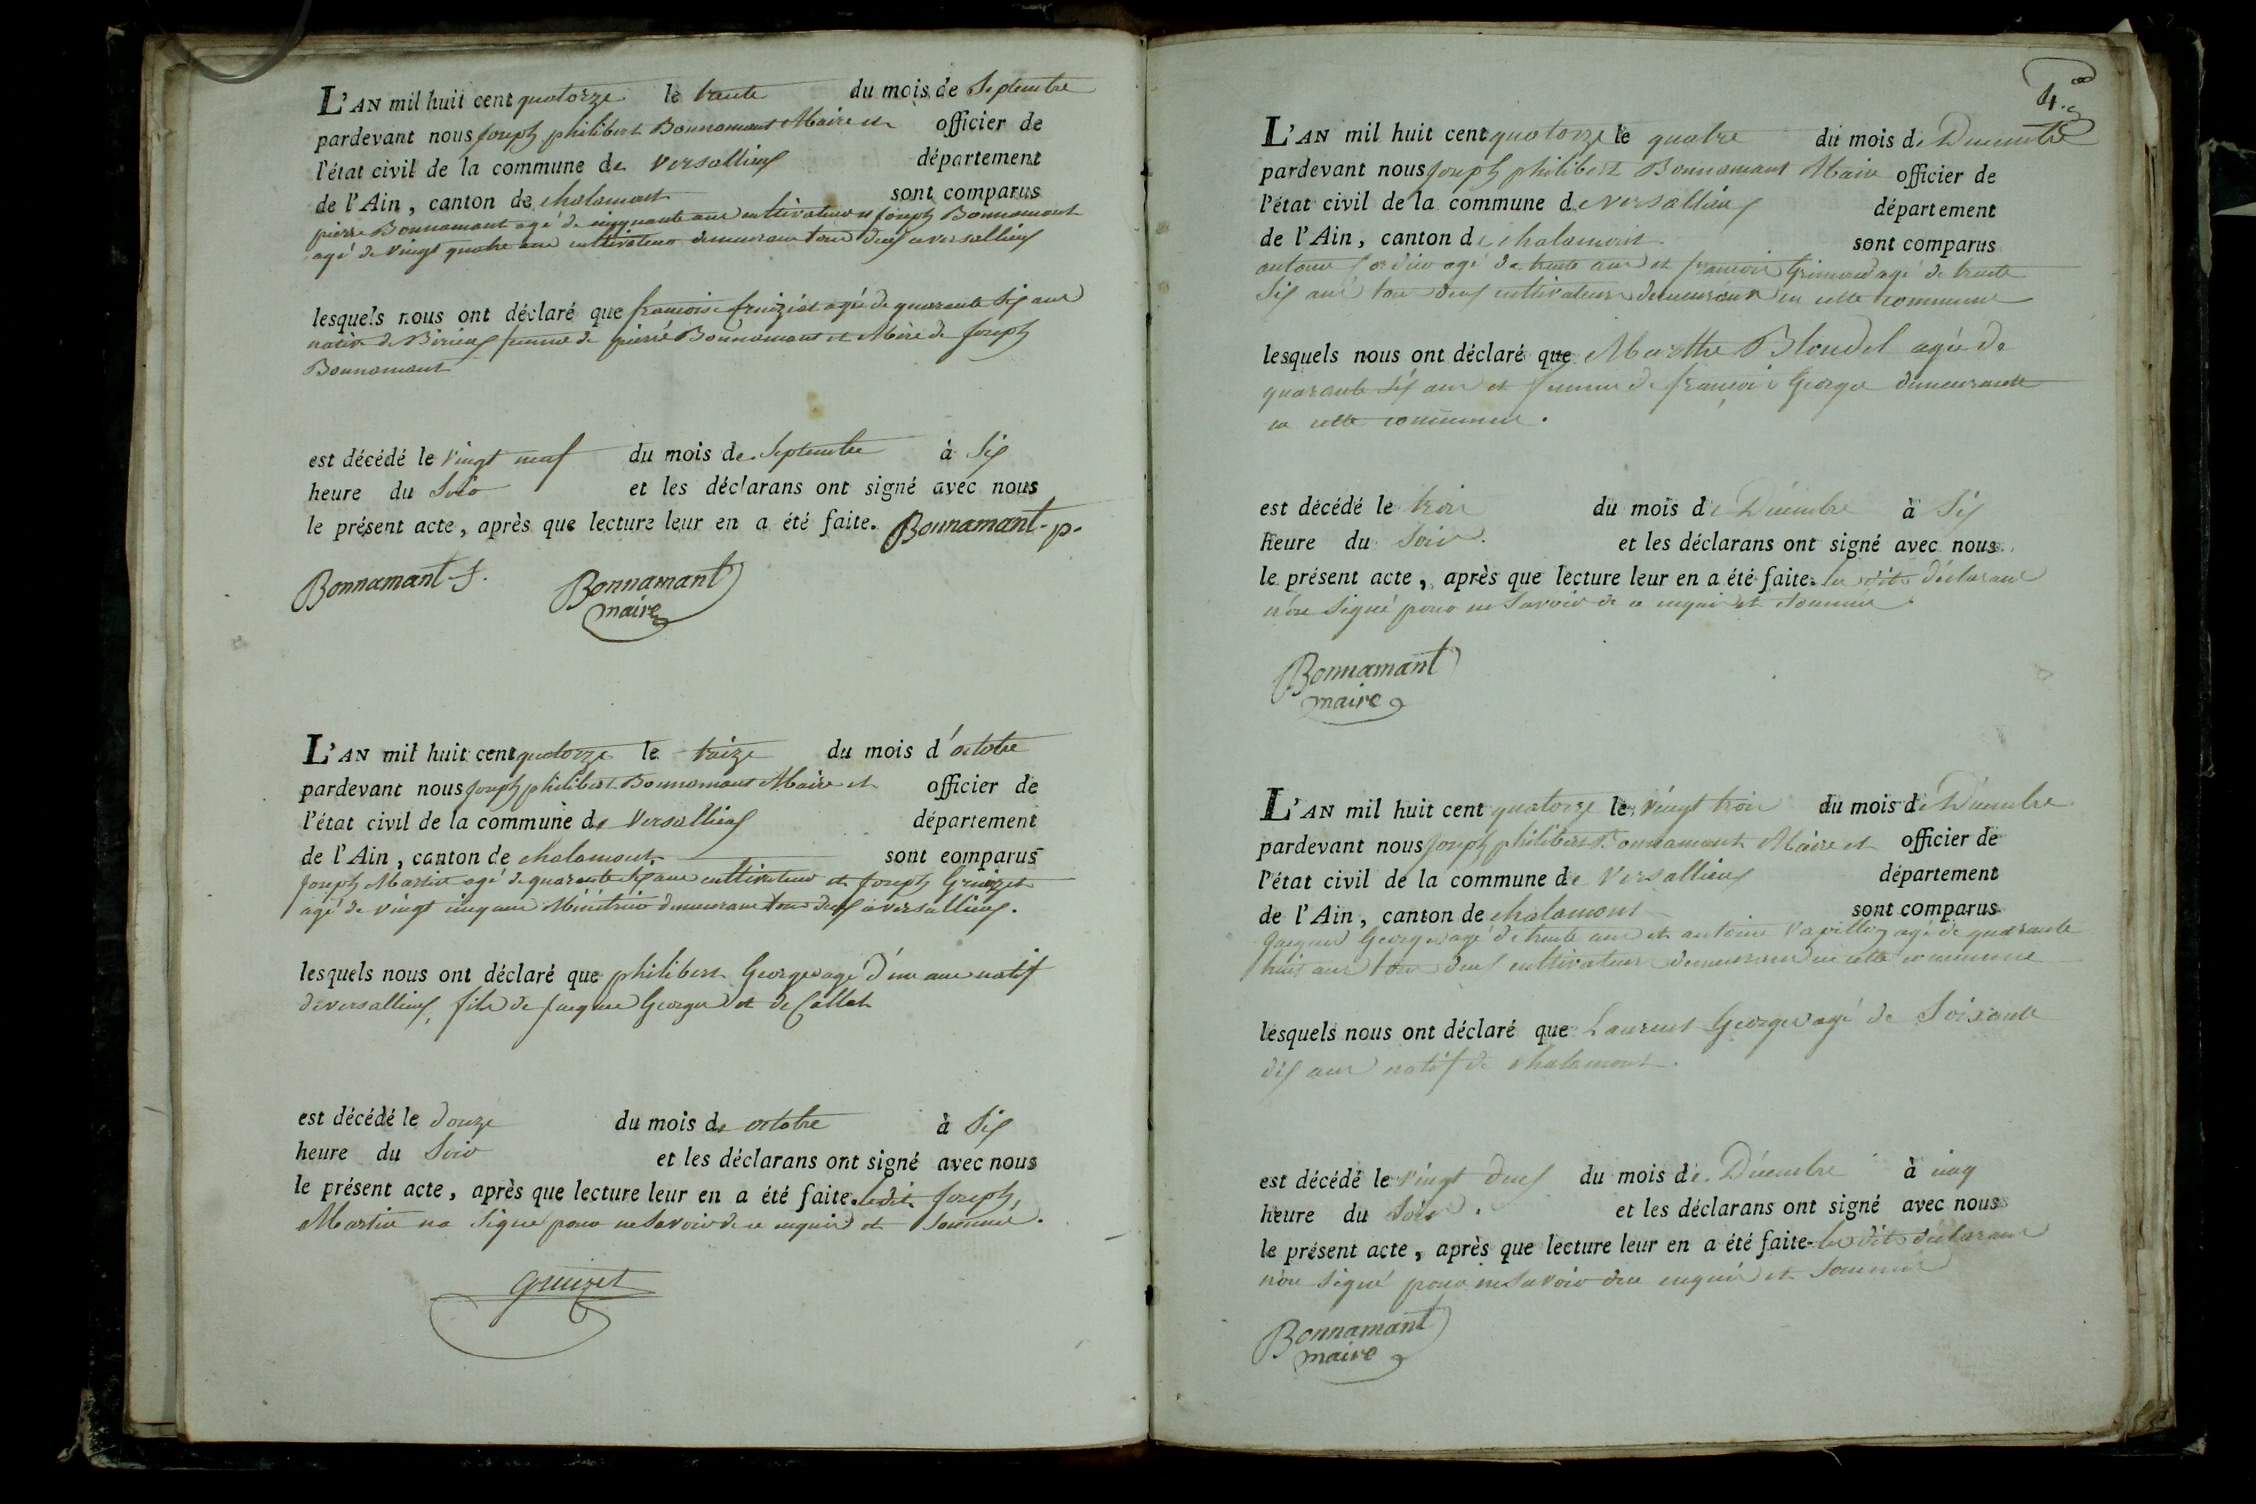 L'AN mil huit cent quatorze le trente du mois de Septembre
pardevant nous joseph philibert Bonnamant Maire et officier de
l'état civil de la commune de versallieux département
de l'Ain, canton de chalamont sont comparus
pierre Bonnamant agé de cinquante ans cultivateur et joseph Bonnamant
agé de vingt quatre ans cultivateur demeurant tous deux a versallieux
lesquels nous ont déclaré que francoise agée de quarante six ans
native de Birieux femme de pierre Bonnamant et Mère de joseph
Bonnamant
est décédé le vingt neuf du mois de Septembre à Six
heure du Soir et les déclarans ont signé avec nous
le présent acte, après que lecture leur en a été faite. Bonnamant-p.
Bonnamant-J. Bonnamant
maire
L'AN mil huit cent quatorze le treize du mois d'octobre
pardevant nous joseph philibert Bonnamant Maire et officier de
l'état civil de la commune de Versallieux département
de l'Ain, canton de chalamont sont comparus
joseph Martin agé de quarante six ans cultivateur et joseph Gruizet
agé de vingt cinq ans demeurant tous deux a versallieux.
lesquels nous ont déclaré que philibert George agé d'un ans natif
de versallieux, fils de jacques George et de Collet
est décédé le douze du mois de octobre à Six
heure du Soir et les déclarans ont signé avec nous
le présent acte, après que lecture leur en a été faite. ledit joseph
Martin na signé pour ne Savoir de ce enquis et Sommé.
Gruizet
4.
L'AN mil huit cent quatorze le quatre du mois de Décembre
pardevant nous joseph philibert Bonnamant Maire officier de
l'état civil de la commune de versallieux département
de l'Ain, canton de chalamont sont comparus
antoine agé de trente ans et francois Grimaud agé de trente
Six ans tous deux cultivateurs demeurant en cette commune
lesquels nous ont déclaré que Marthe Blondel agée de
quarante six ans et femme de francois George demeurante
en cette commune.
est décédé le trois du mois de Décembre à Six
heure du Soir. et les déclarans ont signé avec nous
le présent acte, après que lecture leur en a été faite. les dits déclarans
n'ont Signé pour ne Savoir de ce enquis et Sommés.
Bonnamant
maire
L'AN mil huit cent quatorze le vingt trois du mois de Décembre
pardevant nous joseph philibert Bonnamant Maire et officier de
l'état civil de la commune de Versallieux département
de l'Ain, canton de chalamont sont comparus
jacques George agé de trente ans et antoine Vapillon agé de quarante
huit ans tous deux cultivateurs demeurant en cette commune
lesquels nous ont déclaré que Laurent George agé de Soixante
dix ans natif de chalamont.
est décédé le vingt deux du mois de Décembre à cinq
heure du Soir. et les déclarans ont signé avec nous
le présent acte, après que lecture leur en a été faite- les dits déclarans
n'ont Signé pour ne Savoir de ce enquis et Sommés
Bonnamant
maire